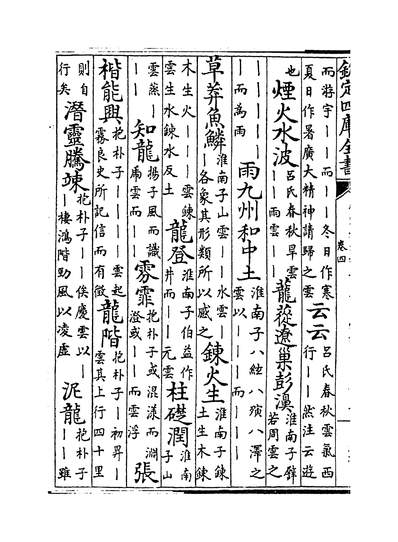 欽定四庫全書
卷四
而游宇丨丨而丨丨冬日作寒
夏日作暑廣大精神請歸之雲
云云
呂氏春秋雲氣西
行丨丨然注云遊
也
煙火水波
呂氏春秋旱雲
丨丨雨雲丨丨
龍蓯遼巢彭濞
淮南子譬
若周雲之
丨丨丨丨丨
丨而為雨
雨九州和中土
淮南子八紘八殥八澤之
雲以丨丨丨而丨丨丨
草莽魚鱗
淮南子山雲丨丨水雲丨
丨各象其形類所以感之
鍊火生
淮南子鍊
土生木鍊
木生火丨丨丨雲鍊
雲生水鍊水反土
龍登
淮南子伯益作
井而丨丨元雲
柱礎潤
淮南
子山
雲蒸丨
丨丨
知龍
揚子風而識
虎雲而丨丨
霧霏
抱朴子或混漾而淵
澄或丨丨而雲浮
張
楷能興
抱朴子丨丨丨丨雲起
霧良史所記信而有徵
龍階
抱朴子丨丨初昇丨
雲其上行四十里
則自
行矣
潛靈騰竦
抱朴子丨丨俟慶雲以丨
丨棲鴻階助風以凌虛
泥龍
抱朴子
丨丨雖